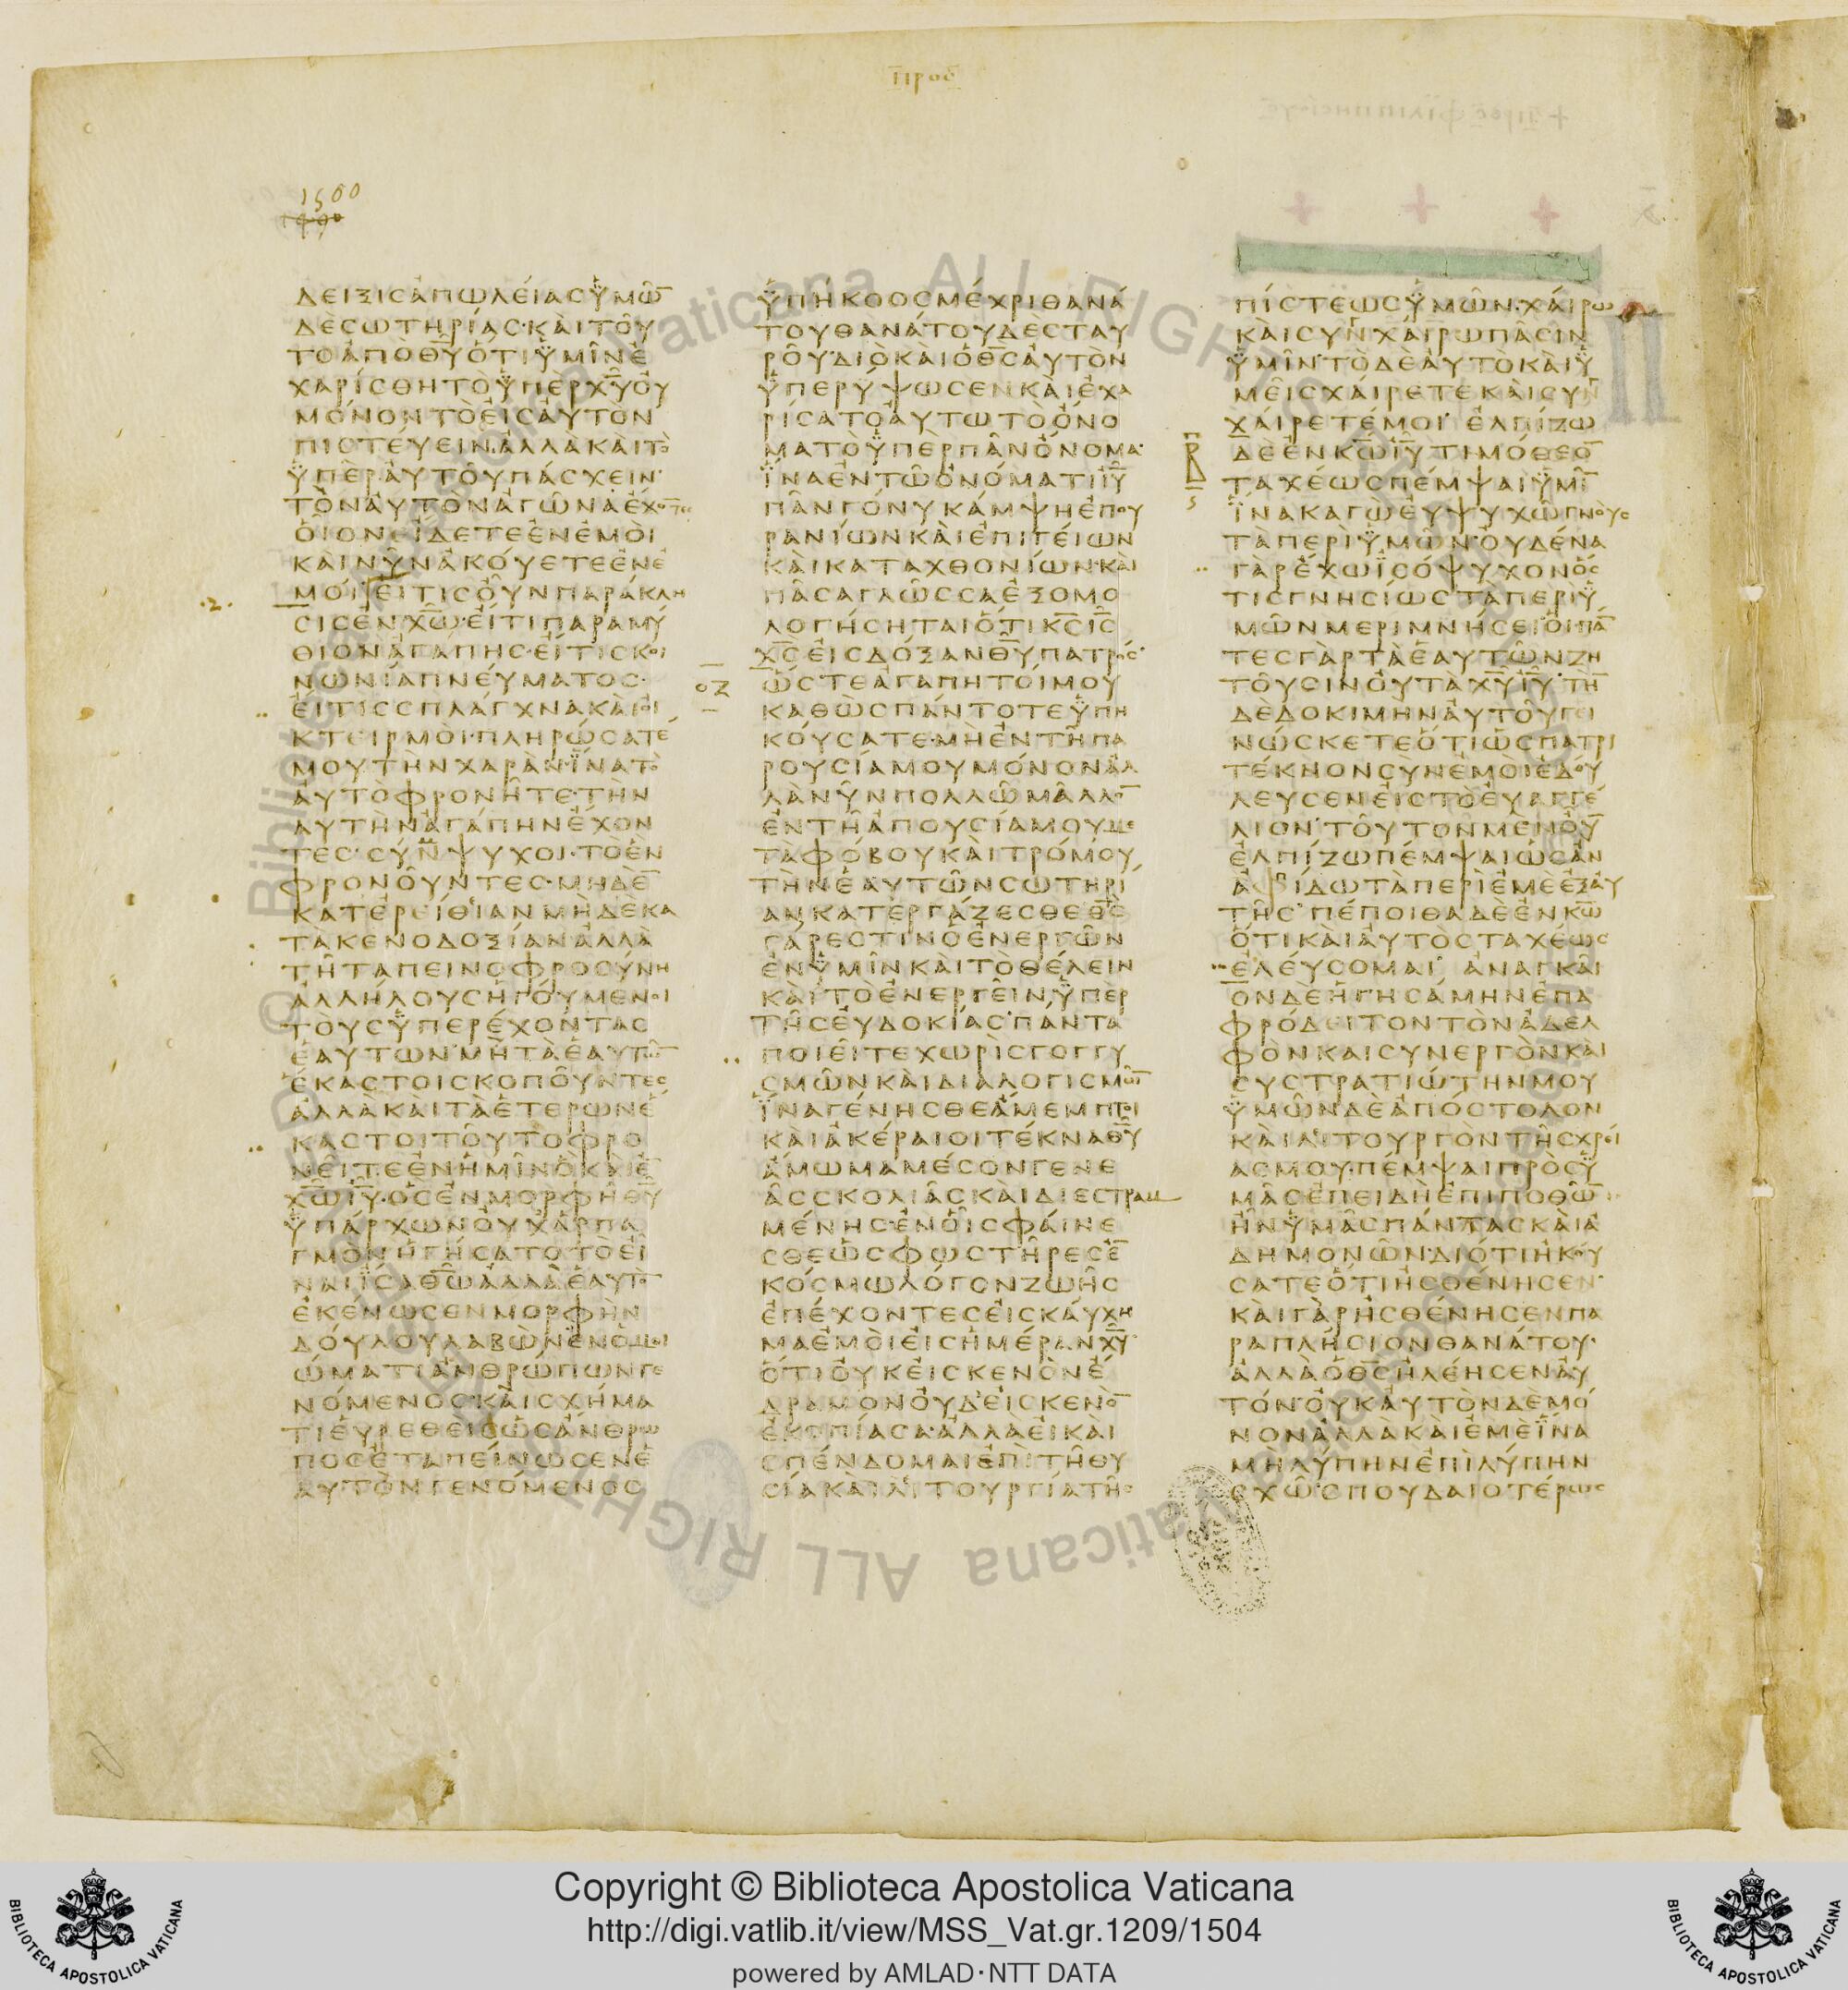 ΠΡΟΣ
1500
ΔΕΙΞΙϹΑΠΩΛΕΙΑϹΥΜΩ̅
ΔΕϹΩΤΗΡΙΑϹ·ΚΑΙΤΟΥ
ΤΟΑΠΟΘ̅Υ̅ΟΤΙΥΜΙΝΕ
ΧΑΡΙϹΘΗΤΟΥΠΕΡΧ̅Υ̅ΟΥ
ΜΟΝΟΝΤΟΕΙϹΑΥΤΟΝ
ΠΙϹΤΕΥΕΙΝΑΛΛΑΚΑΙΤΟ
ΥΠΕΡΑΥΤΟΥΠΑϹΧΕΙΝ·
ΤΟΝΑΥΤΟΝΑΓΩΝΑΕΧΟ̅ΤΕϹ
ΟΙΟΝΕΙΔΕΤΕΕΝΕΜΟΙ
ΚΑΙΝΥΝΑΚΟΥΕΤΕΕΝΕ
ΜΟΙ ΕΙΤΙϹΟΥΝΠΑΡΑΚΛΗ
ϹΙϹΕΝΧ̅Ω̅·ΕΙΤΙΠΑΡΑΜΥ
ΘΙΟΝΑΓΑΠΗϹ·ΕΙΤΙϹΚΟΙ
ΝΩΝΙΑΠΝΕΥΜΑΤΟϹ·
ΕΙΤΙϹϹΠΛΑΓΧΝΑΚΑΙΟΙ
ΚΤΕΙΡΜΟΙ·ΠΛΗΡΩϹΑΤΕ
ΜΟΥΤΗΝΧΑΡΑΝ·ΪΝΑΤΟ
ΑΥΤΟΦΡΟΝΗΤΕ·ΤΗΝ
ΑΥΤΗΝΑΓΑΠΗΝΕΧΟΝ
ΤΕϹ·ϹΥΝΨΥΧΟΙ·ΤΟΕΝ
ΦΡΟΝΟΥΝΤΕϹ·ΜΗΔΕ̅
ΚΑΤΕΡΕΙΘΙΑΝΜΗΔΕΚΑ
ΤΑΚΕΝΟΔΟΞΙΑΝΑΛΛΑ
ΤΗΤΑΠΕΙΝΟΦΡΟϹΥΝΗ
ΑΛΛΗΛΟΥϹΗΓΟΥΜΕΝΟΙ
ΤΟΥϹΥΠΕΡΕΧΟΝΤΑϹ
ΕΑΥΤΩΝ·ΜΗΤΑΕΑΥΤΩ̅
ΕΚΑϹΤΟΙϹΚΟΠΟΥΝΤΕϹ
ΑΛΛΑΚΑΙΤΑΕΤΕΡΩΝΕ
ΚΑϹΤΟΙΤΟΥΤΟΦΡΟ
ΝΕΙΤΕΕΝΗΜΙΝΟΚΑΙΕ̅
Χ̅Ω̅Ι̅Υ̅·ΟϹΕΝΜΟΡΦΗΘ̅Υ̅
ΥΠΑΡΧΩΝΟΥΧΑΡΠΑ
ΓΜΟΝΗΓΗϹΑΤΟΤΟΕΙ
ΝΑΙΪϹΑΘ̅Ω̅ΑΛΛΑΕΑΥΤΟ̅
ΕΚΕΝΩϹΕΝΜΟΡΦΗΝ
ΔΟΥΛΟΥΛΑΒΩΝΕΝΟΜΟΙ
ΩΜΑΤΙΑΝΘΡΩΠΩΝΓΕ
ΝΟΜΕΝΟϹ·ΚΑΙϹΧΗΜΑ
ΤΙΕΥΡΕΘΕΙϹΩϹΑΝΘΡΩ
ΠΟϹΕΤΑΠΕΙΝΩϹΕΝΕ
ΑΥΤΟΝΓΕΝΟΜΕΝΟϹ
ΥΠΗΚΟΟϹΜΕΧΡΙΘΑΝΑ
ΤΟΥΘΑΝΑΤΟΥΔΕϹΤΑΥ
ΡΟΥ·ΔΙΟΚΑΙΟΘ̅Ϲ̅ΑΥΤΟΝ
ΥΠΕΡΥΨΩϹΕΝΚΑΙΕΧΑ
ΡΙϹΑΤΟΑΥΤΩΤΟΟΝΟ
ΜΑΤΟΥΠΕΡΠΑΝΟΝΟΜΑ·
ΪΝΑΕΝΤΩΟΝΟΜΑΤΙΙ̅Υ̅
ΠΑΝΓΟΝΥΚΑΜΨΗΕΠΟΥ
ΡΑΝΙΩΝΚΑΙΕΠΙΓΕΙΩΝ
ΚΑΙΚΑΤΑΧΘΟΝΙΩΝ·ΚΑΙ
ΠΑϹΑΓΛΩϹϹΑΕΞΟΜΟ
ΛΟΓΗϹΗΤΑΙΟΤΙΚ̅Ϲ̅Ι̅Ϲ̅
Χ̅Ϲ̅ΕΙϹΔΟΞΑΝΘ̅Υ̅ΠΑΤΡΟϹ·
ΟΖ
ΩϹΤΕΑΓΑΠΗΤΟΙΜΟΥ
ΚΑΘΩϹΠΑΝΤΟΤΕΥΠΗ
ΚΟΥϹΑΤΕ·ΜΗΕΝΤΗΠΑ
ΡΟΥϹΙΑΜΟΥΜΟΝΟΝΑΛ
ΛΑΝΥΝΠΟΛΛΩΜΑΛΛΟ̅
ΕΝΤΗΑΠΟΥϹΙΑΜΟΥΜΕ
ΤΑΦΟΒΟΥΚΑΙΤΡΟΜΟΥ
ΤΗΝΕΑΥΤΩΝϹΩΤΗΡΙ
ΑΝΚΑΤΕΡΓΑΖΕϹΘΕΘ̅Ϲ̅
ΓΑΡΕϹΤΙΝΟΕΝΕΡΓΩΝ
ΕΝΥΜΙΝΚΑΙΤΟΘΕΛΕΙΝ
ΚΑΙΤΟΕΝΕΡΓΕΙΝΥΠΕΡ
ΤΗϹΕΥΔΟΚΙΑϹ·ΠΑΝΤΑ
ΠΟΙΕΙΤΕΧΩΡΙϹΓΟΓΓΥ
ϹΜΩΝΚΑΙΔΙΑΛΟΓΙϹΜΩ̅
ΪΝΑΓΕΝΗϹΘΕΑΜΕΜΠΤΟΙ
ΚΑΙΑΚΕΡΑΙΟΙΤΕΚΝΑΘ̅Υ̅
ΑΜΩΜΑΜΕϹΟΝΓΕΝΕ
ΑϹϹΚΟΛΙΑϹΚΑΙΔΙΕϹΤΡΑΜ
ΜΕΝΗϹ·ΕΝΟΙϹΦΑΙΝΕ
ϹΘΕΩϹΦΩϹΤΗΡΕϹΕ̅
ΚΟϹΜΩΛΟΓΟΝΖΩΗϹ
ΕΠΕΧΟΝΤΕϹΕΙϹΚΑΥΧΗ
ΜΑΕΜΟΙΕΙϹΗΜΕΡΑΝΧ̅Υ̅
ΟΤΙΟΥΚΕΙϹΚΕΝΟΝΕ
ΔΡΑΜΟΝΟΥΔΕΙϹΚΕΝΟ̅
ΕΚΟΠΙΑϹΑ·ΑΛΛΑΕΙΚΑΙ
ϹΠΕΝΔΟΜΑΙΕΠΙΤΗΘΥ
ϹΙΑΚΑΙΛΙΤΟΥΡΓΙΑΤΗϹ
ΠΙϹΤΕΩϹΥΜΩΝ·ΧΑΙΡΩ
ΚΑΙϹΥΝΧΑΙΡΩΠΑϹΙΝ
ΥΜΙΝ·ΤΟΔΕΑΥΤΟΚΑΙΥ
ΜΕΙϹΧΑΙΡΕΤΕΚΑΙϹΥΝ
ΧΑΙΡΕΤΕΜΟΙ· ΕΛΠΙΖΩ
ΔΕΕΝΚ̅Ω̅Ι̅Υ̅ΤΙΜΟΘΕΟ̅
ΤΑΧΕΩϹΠΕΜΨΑΙΥΜΙ̅
ΪΝΑΚΑΓΩΕΥΨΥΧΩΓΝΟΥϹ
ΤΑΠΕΡΙΥΜΩΝ·ΟΥΔΕΝΑ
ΓΑΡΕΧΩΪϹΟΨΥΧΟΝΟϹ
ΤΙϹΓΝΗϹΙΩϹΤΑΠΕΡΙΥ
ΜΩΝΜΕΡΙΜΝΗϹΕΙ·ΟΙΠΑ̅
ΤΕϹΓΑΡΤΑΕΑΥΤΩΝΖΗ
ΤΟΥϹΙΝΟΥΤΑΧ̅Υ̅Ι̅Υ̅·ΤΗ̅
ΔΕΔΟΚΙΜΗΝΑΥΤΟΥΓΕΙ
ΝΩϹΚΕΤΕΟΤΙΩϹΠΑΤΡΙ
ΤΕΚΝΟΝϹΥΝΕΜΟΙΕΔΟΥ
ΛΕΥϹΕΝΕΙϹΤΟΕΥΑΓΓΕ
ΛΙΟΝ·ΤΟΥΤΟΝΜΕΝΟΥ̅
ΕΛΠΙΖΩΠΕΜΨΑΙΩϹΑΝ
ΑΦΙΔΩΤΑΠΕΡΙΕΜΕΕΞΑΥ
ΤΗϹ·ΠΕΠΟΙΘΑΔΕΕΝΚ̅Ω̅
ΟΤΙΚΑΙΑΥΤΟϹΤΑΧΕΩϹ
ΕΛΕΥϹΟΜΑΙ· ΑΝΑΓΚΑΙ
ΟΝΔΕΗΓΗϹΑΜΗΝΕΠΑ
ΦΡΟΔΕΙΤΟΝΤΟΝΑΔΕΛ
ΦΟΝΚΑΙϹΥΝΕΡΓΟΝΚΑΙ
ϹΥϹΤΡΑΤΙΩΤΗΝΜΟΥ
ΥΜΩΝΔΕΑΠΟϹΤΟΛΟΝ
ΚΑΙΛΙΤΟΥΡΓΟΝΤΗϹΧΡΕΙ
ΑϹΜΟΥ·ΠΕΜΨΑΙΠΡΟϹΥ
ΜΑϹΕΠΕΙΔΗΕΠΙΠΟΘΩ̅
ΗΝΥΜΑϹΠΑΝΤΑϹΚΑΙΑ
ΔΗΜΟΝΩΝ·ΔΙΟΤΙΗΚΟΥ
ϹΑΤΕΟΤΙΗϹΘΕΝΗϹΕΝ·
ΚΑΙΓΑΡΗϹΘΕΝΗϹΕΝΠΑ
ΡΑΠΛΗϹΙΟΝΘΑΝΑΤΟΥ·
ΑΛΛΑΟΘ̅Ϲ̅ΗΛΕΗϹΕΝΑΥ
ΤΟΝ·ΟΥΚΑΥΤΟΝΔΕΜΟ
ΝΟΝΑΛΛΑΚΑΙΕΜΕΪΝΑ
ΜΗΛΥΠΗΝΕΠΙΛΥΠΗΝ
ϹΧΩ·ϹΠΟΥΔΑΙΟΤΕΡΩϹ
Copyright © Biblioteca Apostolica Vaticana
http://digi.vatlib.it/view/MSS_Vat.gr.1209/1504
powered by AMLAD·NTT DATA
BIBLIOTECA APOSTOLICA VATICANA
BIBLIOTECA APOSTOLICA VATICANA